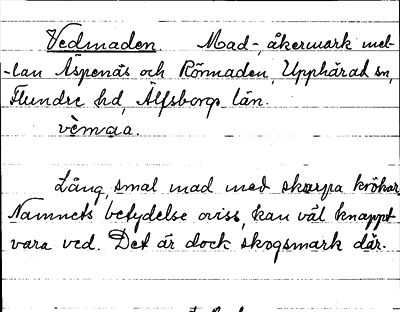 Vedmaden. Mad-, åkermark mel-
-lan Äspenäs och Rörmaden, Upphärad sn,
Flundre hd, Älfsborgs län.
vèmaa.
Lång, smal mad med skarpa krökar.
Namnets betydelse oviss, kan väl knappt
vara ved. Det är dock skogsmark där.